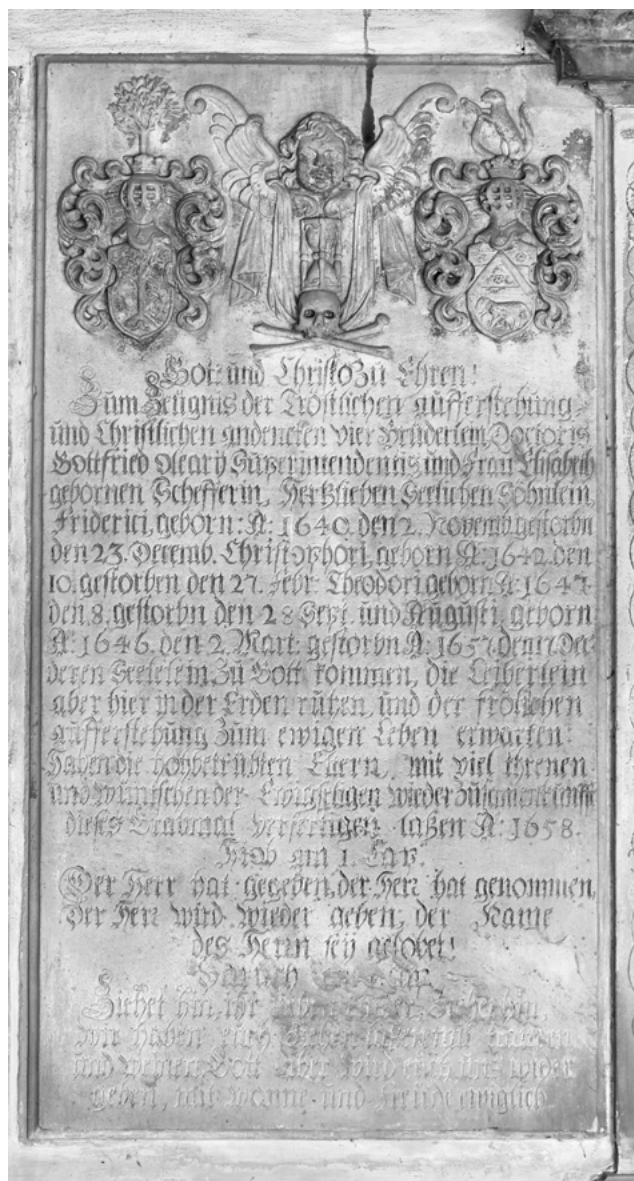 Gott und Christo Zu Ehren!
Zum Zeugnis der Tröstlichen aufferstehung
und Christlichen andencken vier Brüderlein, Doctoris
Gottfried Olearÿ Superintendentis und Frau Elisabeth
gebornen Schefferin, Hertzlieben Seelichen Söhnlein,
Friderici, geborn: A: 1640. den 2. Novemb. gestorbn
den 23. Decemb. Christophori, geborn A: 1642. den
10. gestorben den 27. Febr. Theodori geborn A: 1647.
den 8. gestorbn den 28 Sept. und Augusti, geborn
A: 1646. den 2. Mart: gestorbn A: 1657. den 17 Dec
deren Seelelein Zu Gott kommen, die Leiberlein
aber hier in der Erden ruhen, und der frölichen
aufferstehung Zum ewigen Leben erwarten:
Haben die hochbetrübten Eltern, mit viel threnen
und wüntschen der wieder
dieses Grabmaal verfertigen laßen A: 1658.
Hiob am 1. Cap.
Der Herr hat gegeben, der Herr hat genommen,
Der Herr wird wieder geben, der Name
des Herrn seÿ gelobet!
Baruch
Ziehet hin, ihr Kinder, Ziehet hin,
wir haben euch Ziehen mit trauren
und weinen, Gott aber wird euch uns wider
geben, mit wonne und freude ewiglich